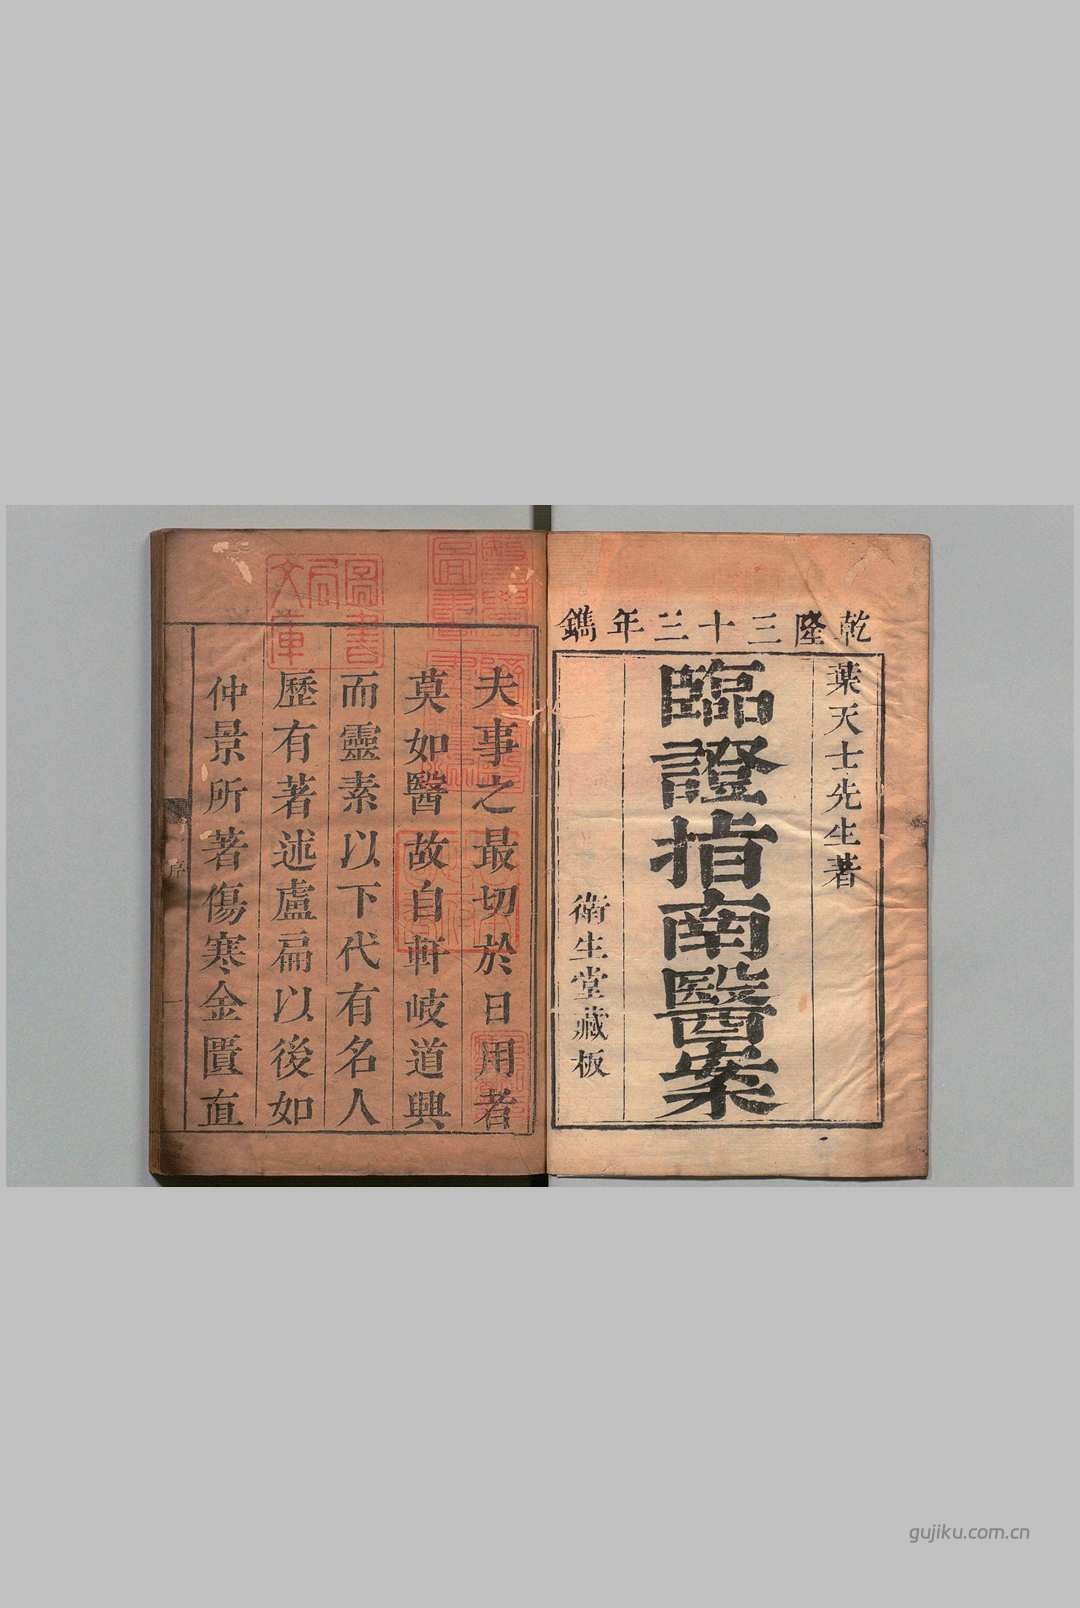 乾隆三十三年鐫
葉天士先生著
臨證指南醫案
衛生堂藏板
夫事之最切於日用者
莫如醫故自軒岐道興
而靈素以下代有名人
歷有著述盧扁以後如
仲景所著傷寒金匱直
序
一
圖書
局
文庫
gujiku.com.cn